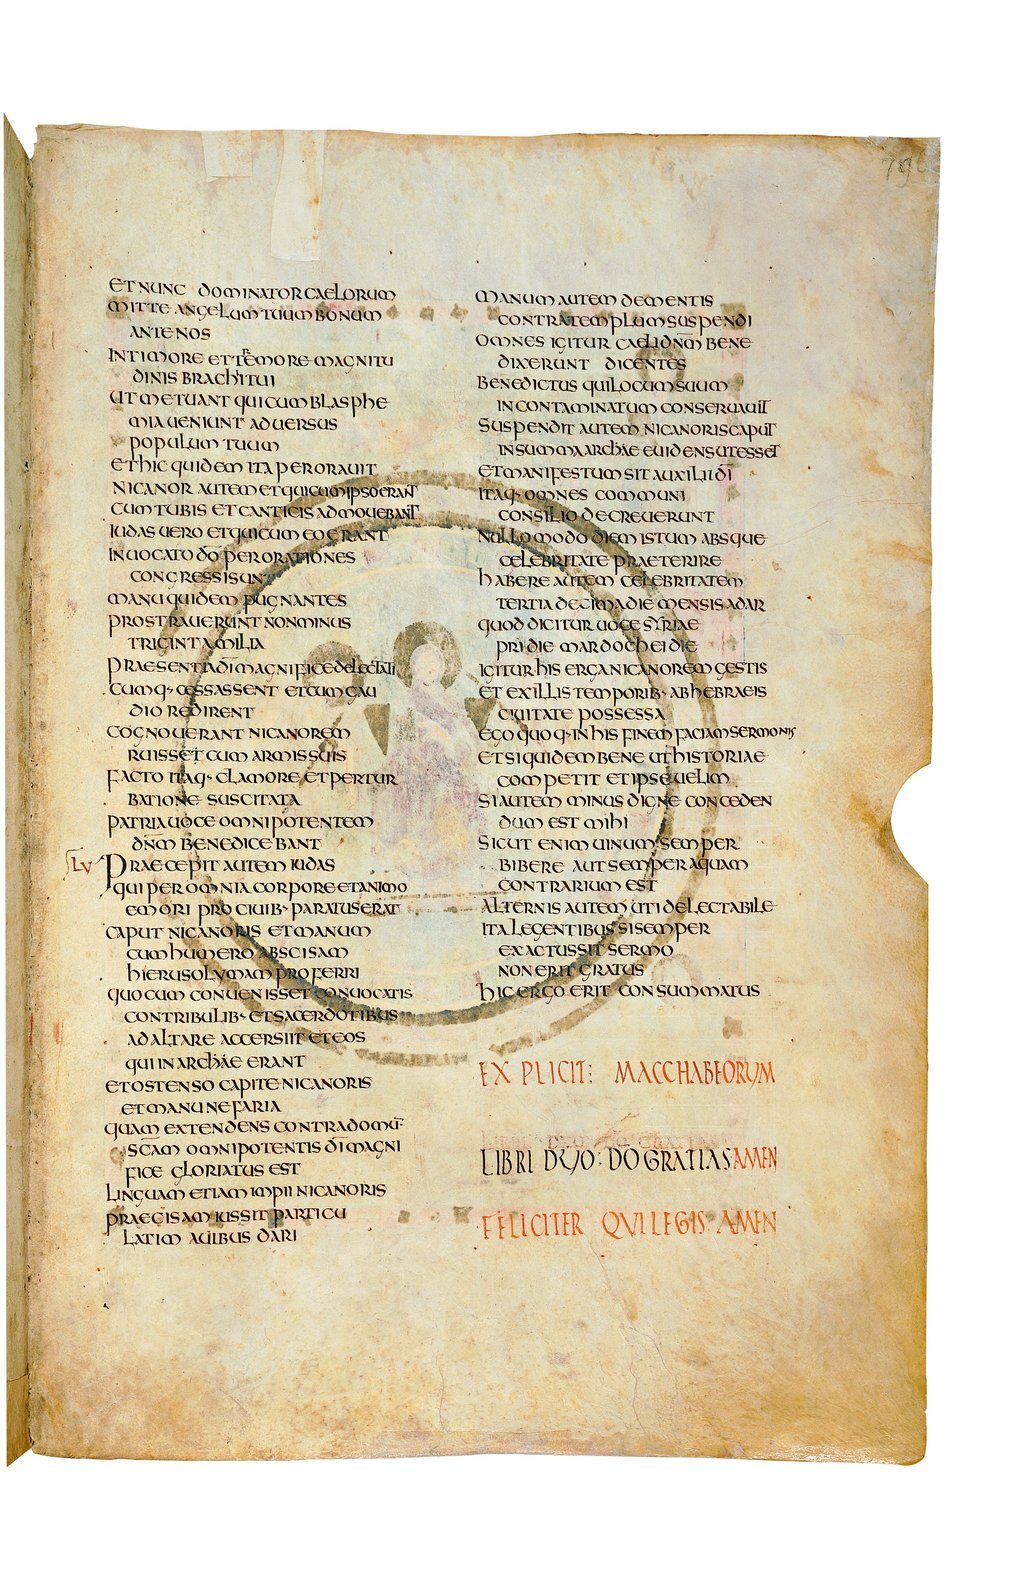 796
ET NUNC DOMINATOR CAELORUM
MITTE ANGELUM TUUM BONUM
ANTE NOS
IN TIMORE ET TREMORE MAGNITU
DINIS BRACHII TUI
UT METUANT QUI CUM BLASPHE
MIA UENIUNT ADUERSUS
POPULUM TUUM
ET HIC QUIDEM ITA PERORAUIT
NICANOR AUTEM ET QUI CUM IPSO ERANT
CUM TUBIS ET CANTICIS ADMOUEBANT
IUDAS UERO ET QUI CUM EO ERANT
INUOCATO DO PER ORATIONES
CONGRESSI SUNT
MANU QUIDEM PUGNANTES
PROSTRAUERUNT NON MINUS
TRIGINTA MILIA
PRAESENTIA DI MAGNIFICE DELECTATI
CUMQ· CESSASSENT ET CUM GAU
DIO REDIRENT
COGNOUERANT NICANOREM
RUISSET CUM ARMIS SUIS
FACTO ITAQ· CLAMORE ET PERTUR
BATIONE SUSCITATA
PATRIA UOCE OMNIPOTENTEM
DNM BENEDICEBANT
LV PRAECEPIT AUTEM IUDAS
QUI PER OMNIA CORPORE ET ANIMO
EMORI PRO CIUIB· PARATUS ERAT
CAPUT NICANORIS ET MANUM
CUM HUMERO ABSCISAM
HIERUSOLYMAM PROFERRI
QUO CUM CONUENISSET CONUOCATIS
CONTRIBULIB· ET SACERDOTIBUS
AD ALTARE ACCERSIIT ET EOS
QUI IN ARCHAE ERANT
ET OSTENSO CAPITE NICANORIS
ET MANU NEFARIA
QUAM EXTENDENS CONTRA DOMU
SCAM OMNIPOTENTIS DI MAGNI
FICE GLORIATUS EST
LINGUAM ETIAM IMPII NICANORIS
PRAECISAM IUSSIT PARTICU
LATIM AUIBUS DARI
MANUM AUTEM DEMENTIS
CONTRA TEMPLUM SUSPENDI
OMNES IGITUR CAELI DNM BENE
DIXERUNT DICENTES
BENEDICTUS QUI LOCUM SUUM
INCONTAMINATUM CONSERUAUIT
SUSPENDIT AUTEM NICANORIS CAPUT
IN SUMMA ARCHAE EUIDENS UT ESSET
ET MANIFESTUM SIT AUXILII DI
ITAQ· OMNES COMMUNI
CONSILIO DECREUERUNT
NULLO MODO DIEM ISTUM ABSQUE
CELEBRITATE PRAETERIRE
HABERE AUTEM CELEBRITATEM
TERTIA DECIMA DIE MENSIS ADAR
QUOD DICITUR UOCE SYRIAE
PRIDIE MARDOCHEI DIE
IGITUR HIS ERGA NICANOREM GESTIS
ET EX ILLIS TEMPORIB· AB HEBRAEIS
CIUITATE POSSESSA
EGO QUOQ· IN HIS FINEM FACIAM SERMONIS
ET SI QUIDEM BENE UT HISTORIAE
COMPETIT ET IPSE UELIM
SI AUTEM MINUS DIGNE CONCEDEN
DUM EST MIHI
SICUT ENIM UINUM SEMPER
BIBERE AUT SEMPER AQUAM
CONTRARIUM EST
ALTERNIS AUTEM UTI DELECTABILE
ITA LEGENTIBUS SI SEMPER
EXACTUS SIT SERMO
NON ERIT GRATUS
HIC ERGO ERIT CONSUMMATUS
EXPLICIT: MACCHABEORUM
LIBRI DUO: DO GRATIAS AMEN
FELICITER QUI LEGIS AMEN